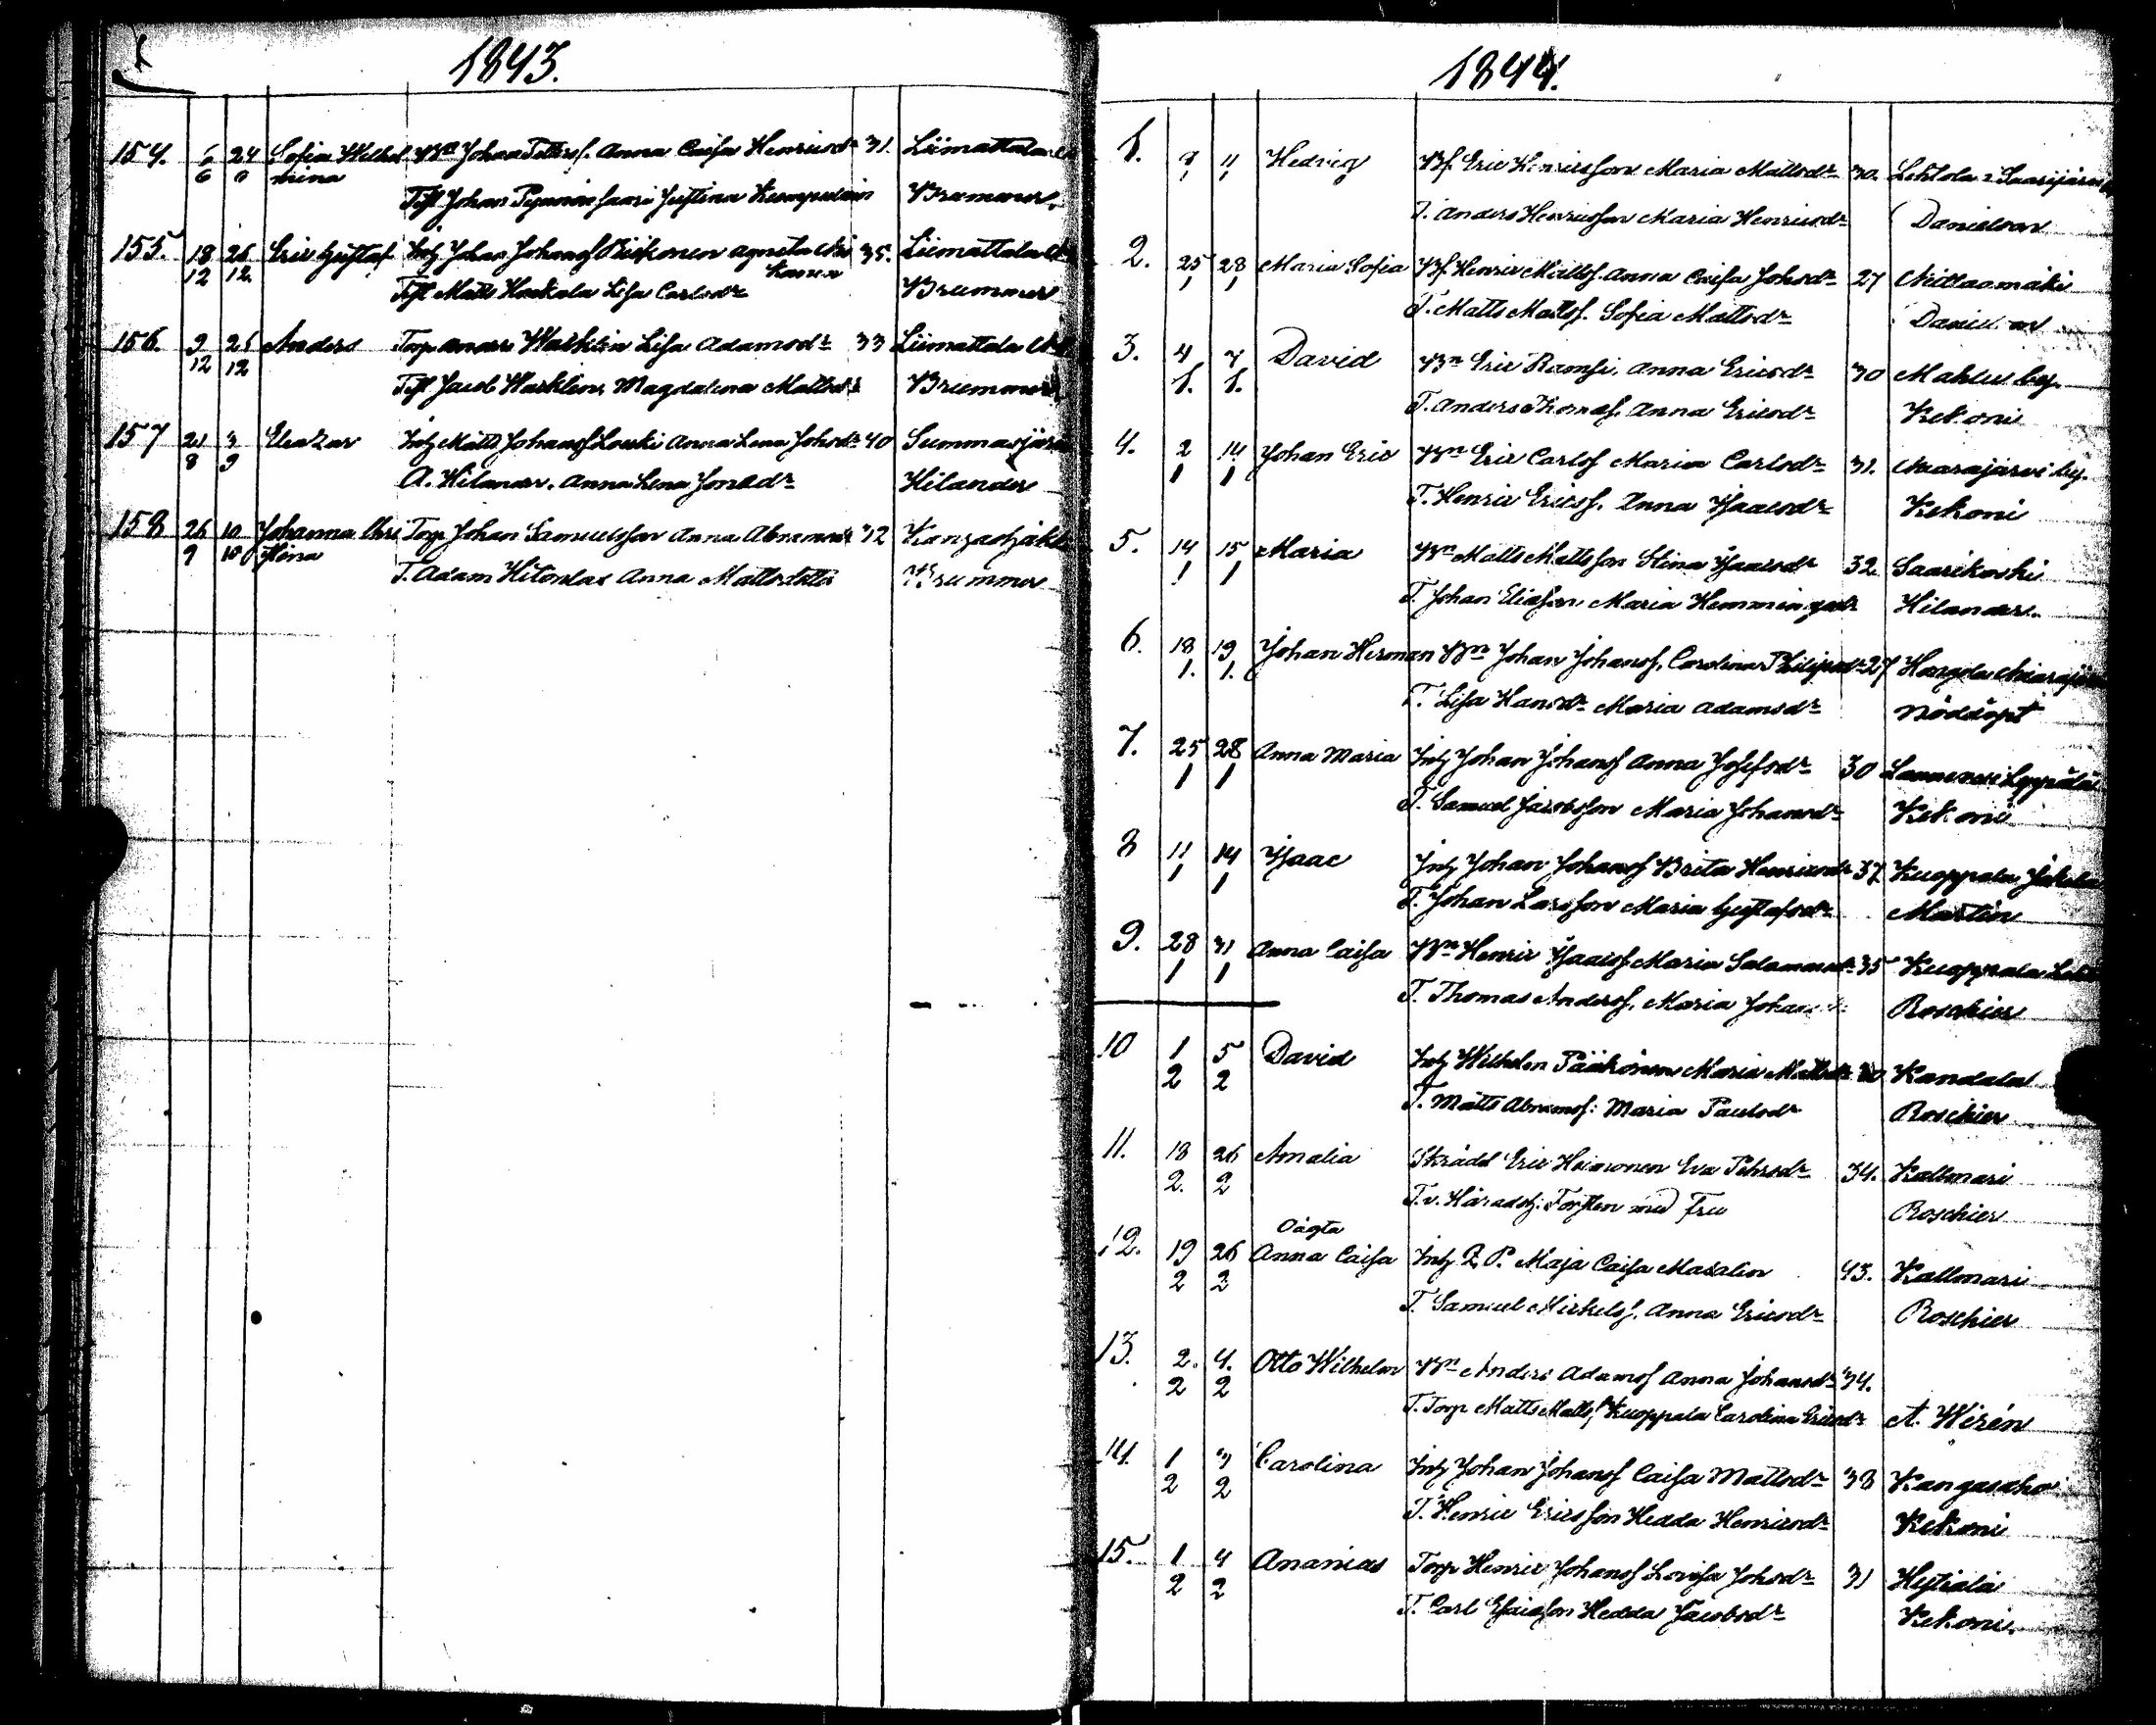 1843.
154. 6 24 Sofia Wilhel Bn Johan Petterss. Anna Caisa Henricsdr 31. Liimattala
6 6 mina
Tijl Johan Pynnönsaari Justina Kumpulain Brummer.
155. 18 26 Eric Gustaf Inh Johan Johanss Piikonen Agneta 35. Liimattala
12 12.
Tijl Matts Hakala Lisa Carlsdr Brummer
156. 9 26 Anders Torp Anders Washlin Lisa Adamsdr 33 Liimattala
12 12
Tijl Jacob Washlin, Magdalena Mattsdr Brummer
157 21 3 Eleazar Inh Matts Johanss Louki Anna Lena Johsdr 40 Summasjärvi
8 9
A. Hilander. Anna Lena Jonasdr Hilander
158 26 10 Johanna Chri Torp Johan Samuelsson Anna Abramsdr 32
9 10 stina
T. Adam Hitonlax Anna Mattsdotter Brummer
1844.
1. 7 11 Hedvig Bf. Eric Henricsson Maria Mattsdr 30. Lehtola Saarijärvi
1 1
T. Anders Henricsson Maria Henricsdr Danielson
2. 25 28 Maria Sofia Bf. Henric Mattss. Anna Caisa Johsdr 27 Mittaomäki
1 1
T. Matts Mattss. Sofia Mattsdr Daniel
3. 4 7 David Bn Eric Ramsi. Anna Ericsdr 30 Mahlu by.
1. 1.
T. Anders Thomass. Anna Ericsdr Kekoni
4. 2 14 Johan Eric Bn Eric Carlss Maria Carlsdr 31. Marajärvi by.
1 1
T. Henric Ericss. Anna Isaacsdr Kekoni
5. 14 15 Maria Bn Matts Mattsson Stina Isaacsdr 32 Saarikoski
1 1
T. Johan Eliasson Maria Hemmingsdr Hilander.
6. 18 19 Johan Herman Bn Johan Johanss. Carolina Philipsdr 27
1. 1.
T. Lisa Hansdr Maria Adamsdr Nöddöpt
7. 25 28 Anna Maria Inh Johan Johanss Anna Josefsdr 30 Lannevesi Leppälä
1 1
T. Samuel Jacobsson Maria Johansdr Kekoni
8 11 14 Isaac Inh Johan Johanss Brita Henricsdr 37 Kuoppala, Jokela
1 1
T. Johan Larsson Maria Gustafsdr Martin
9. 28 31 Anna Caisa Bn Henric Isaacss Maria Salamonsdr 35 Kuoppala
1 1
T. Thomas Anderss. Maria Johansdr Roschier
10 1 5 David Inh Wilhelm Pääkönen Maria Mattsdr Kandala
2 2
T. Matts Abramss: Maria Paulsdr Roschier
11. 18 26 Amalia Skrädd Eric Heimonen Eva Pehrsdr 34. Kallmari
2. 2
T. v. Häradsh: Forsten med Fru Roschier
Oägta
12. 19 26 Anna Caisa Inh Z. P. Maja Caisa Masalin 43. Kallmari
2 2
T. Samuel Mickelss. Anna Ericsdr Roschier
13. 2. 4. Otto Wilhelm Bn Anders Adamss Anna Johansdr 34.
2 2
T. Torp Matts Matts. Kuoppala Carolina Ericsdr A. Wirén
14. 1 3 Carolina Inh Johan Johanss Caisa Mattsdr 38 Kangasaho
2 2
T. Henric Ericsson Hedda Henricsdr Kekoni
15. 1 4 Ananias Torp Henric Johanss Lovisa Johsdr 31 Hytiälä
2 2
T. Carl Esaiasson Hedda Jacobsdr Kekoni.